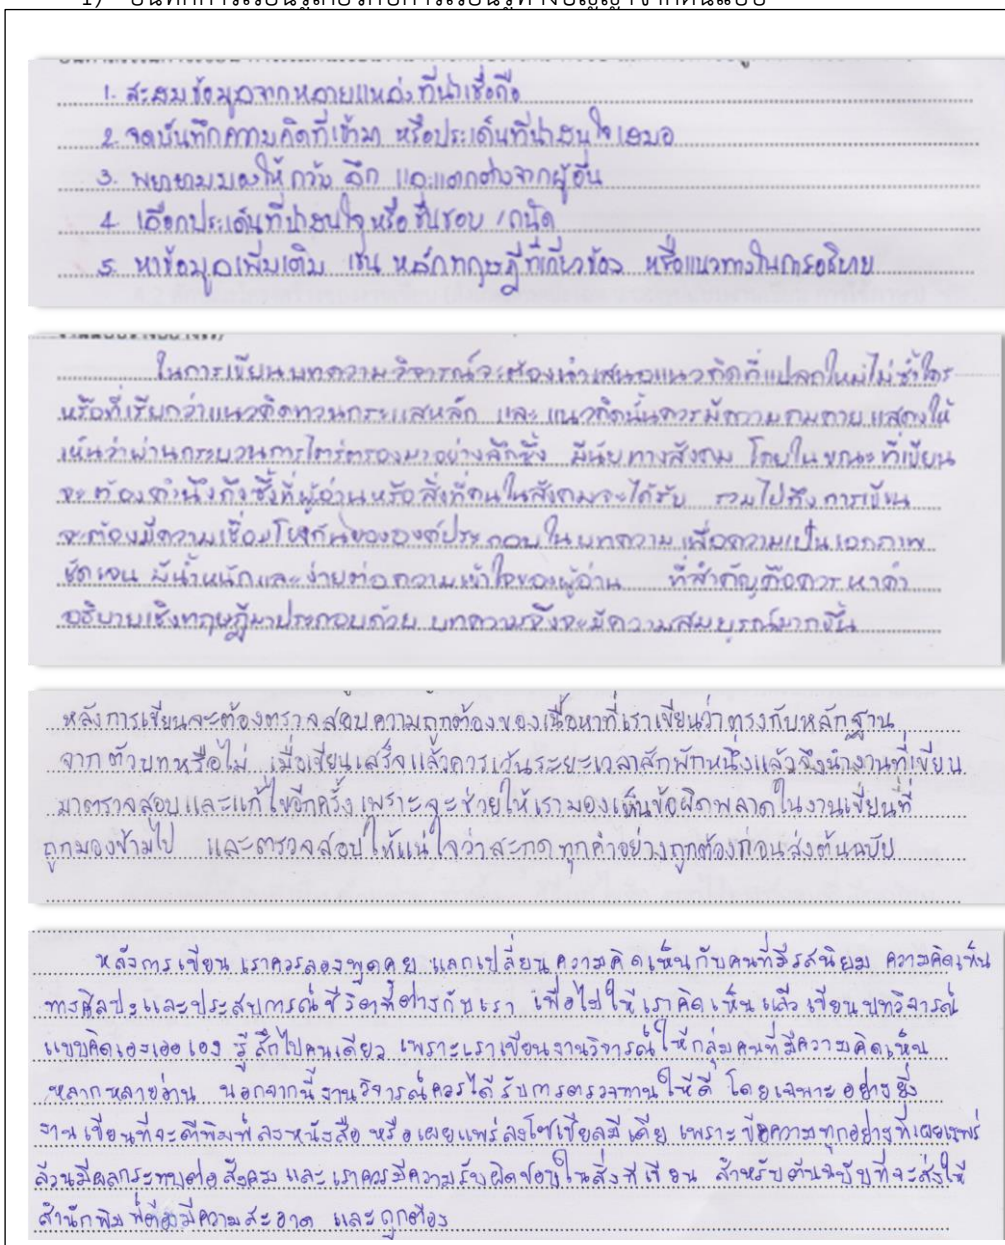 1) บันทึกการเรียนรู้เกี่ยวกับการเรียนรู้ทางปัญญาจากต้นแบบ
1. สะสมข้อมูลจากหลายแหล่งที่น่าเชื่อถือ
2. จดบันทึกความคิดที่เข้ามา หรือประเด็นที่น่าสนใจเสมอ
3. พยายามมองให้กว้าง ลึก และแตกต่างจากผู้อื่น
4. เลือกประเด็นที่น่าสนใจ หรือ ชื่นชอบ / ถนัด
5. หาข้อมูลเพิ่มเติม เช่น หลักทฤษฎีที่เกี่ยวข้อง หรือแนวทางในการอธิบาย
ในการเขียนบทความวิจารณ์จะต้องนำเสนอแนวคิดที่แปลกใหม่ไม่ซ้ำใคร
หรือที่เรียกว่าแนวคิดทวนกระแสหลัก และ แนวคิดนั้นควรมีความคมคาย แสดงให้
เห็นว่าผ่านกระบวนการไตร่ตรองมาอย่างลึกซึ้ง มีนัยทางสังคม โดยในขณะที่เขียน
จะต้องคำนึงถึงซึ่งที่ผู้อ่านหรือสิ่งที่คนในสังคมจะได้รับ รวมไปถึงการเขียน
จะต้องมีความเชื่อมโยงกันขององค์ประกอบในบทความ เพื่อความเป็นเอกภาพ
ชัดเจน มีน้ำหนักและง่ายต่อความเข้าใจของผู้อ่าน ที่สำคัญคือควรหาคำ
อธิบายเชิงทฤษฎีมาประกอบด้วย บทความจึงจะมีความสมบูรณ์มากขึ้น
หลังการเขียนจะต้องตรวจสอบความถูกต้องของเนื้อหาที่เราเขียนว่าตรงกับหลักฐาน
จากตัวบทหรือไม่ เมื่อเขียนเสร็จแล้วควรเว้นระยะเวลาสักพักหนึ่งแล้วจึงนำงานที่เขียน
มาตรวจสอบและแก้ไขอีกครั้ง เพราะจะช่วยให้เรามองเห็นข้อผิดพลาดในงานเขียนที่
ถูกมองข้ามไป และตรวจสอบให้แน่ใจว่าสะกดทุกคำอย่างถูกต้องก่อนส่งต้นฉบับ
หลังการเขียน เราควรลองพูดคุย แลกเปลี่ยน ความคิดเห็นกับคนที่มีรสนิยม ความคิดเห็น
ทางศิลปะและประสบการณ์ชีวิตที่ต่างกับเรา เพื่อไม่ให้เราคิดเห็นแล้วเขียนบทวิจารณ์
แบบคิดเองเออเอง รู้สึกไปคนเดียว เพราะเราเขียนงานวิจารณ์ให้กลุ่มคนที่มีความคิดเห็น
หลากหลายอ่าน นอกจากนี้งานวิจารณ์ควรได้รับการตรวจทานให้ดี โดยเฉพาะอย่างยิ่ง
งานเขียนที่จะตีพิมพ์ลงหนังสือ หรือเผยแพร่ลงโซเชียลมีเดีย เพราะข้อความทุกอย่างที่เผยแพร่
ล้วนมีผลกระทบต่อสังคม และเราควรมีความรับผิดชอบในสิ่งที่เขียน สำหรับต้นฉบับที่จะส่งให้
สำนักพิมพ์ต้องมีความสะอาด และถูกต้อง